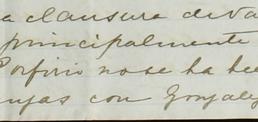 a clausura de va
principalmente
Porfirio no se ha he
ujas con Gonzalez